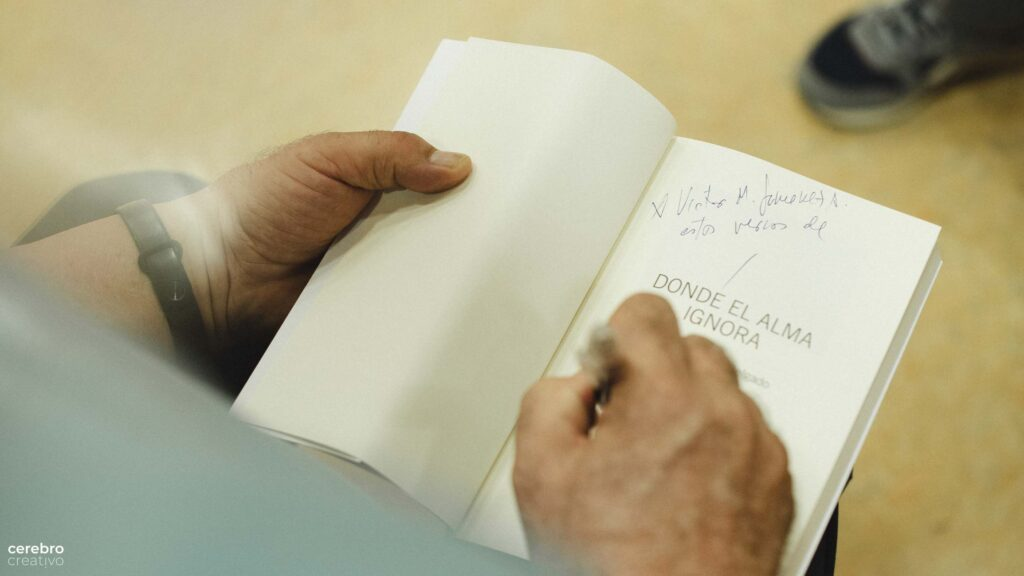 A Victor M. Jimenez A.
estos versos de
DONDE EL ALMA
IGNORA
cerebro
creativo